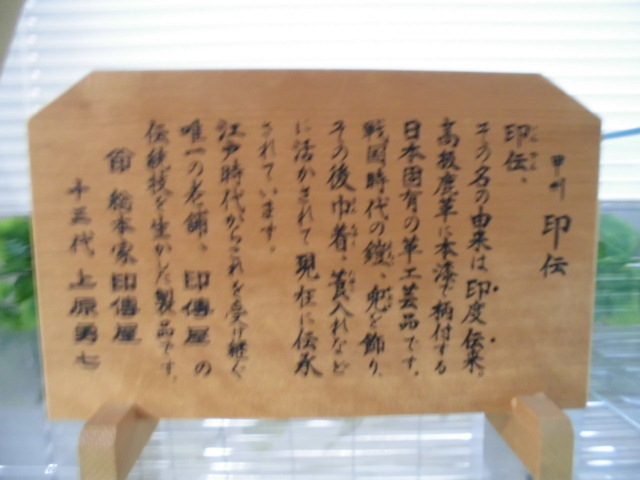 甲州 印伝
印伝、
その名の由来は印度伝来。
高級鹿革に本漆で柄付する
日本固有の革工芸品です。
戦国時代の鎧、兜を飾り、
その後巾着、莨入れなど
に活かされて現在に伝承
されています。
江戸時代からこれを受け継ぐ
唯一の老舗、印傳屋の
伝統技を生かした製品です。
総本家印傳屋
十三代上原勇七